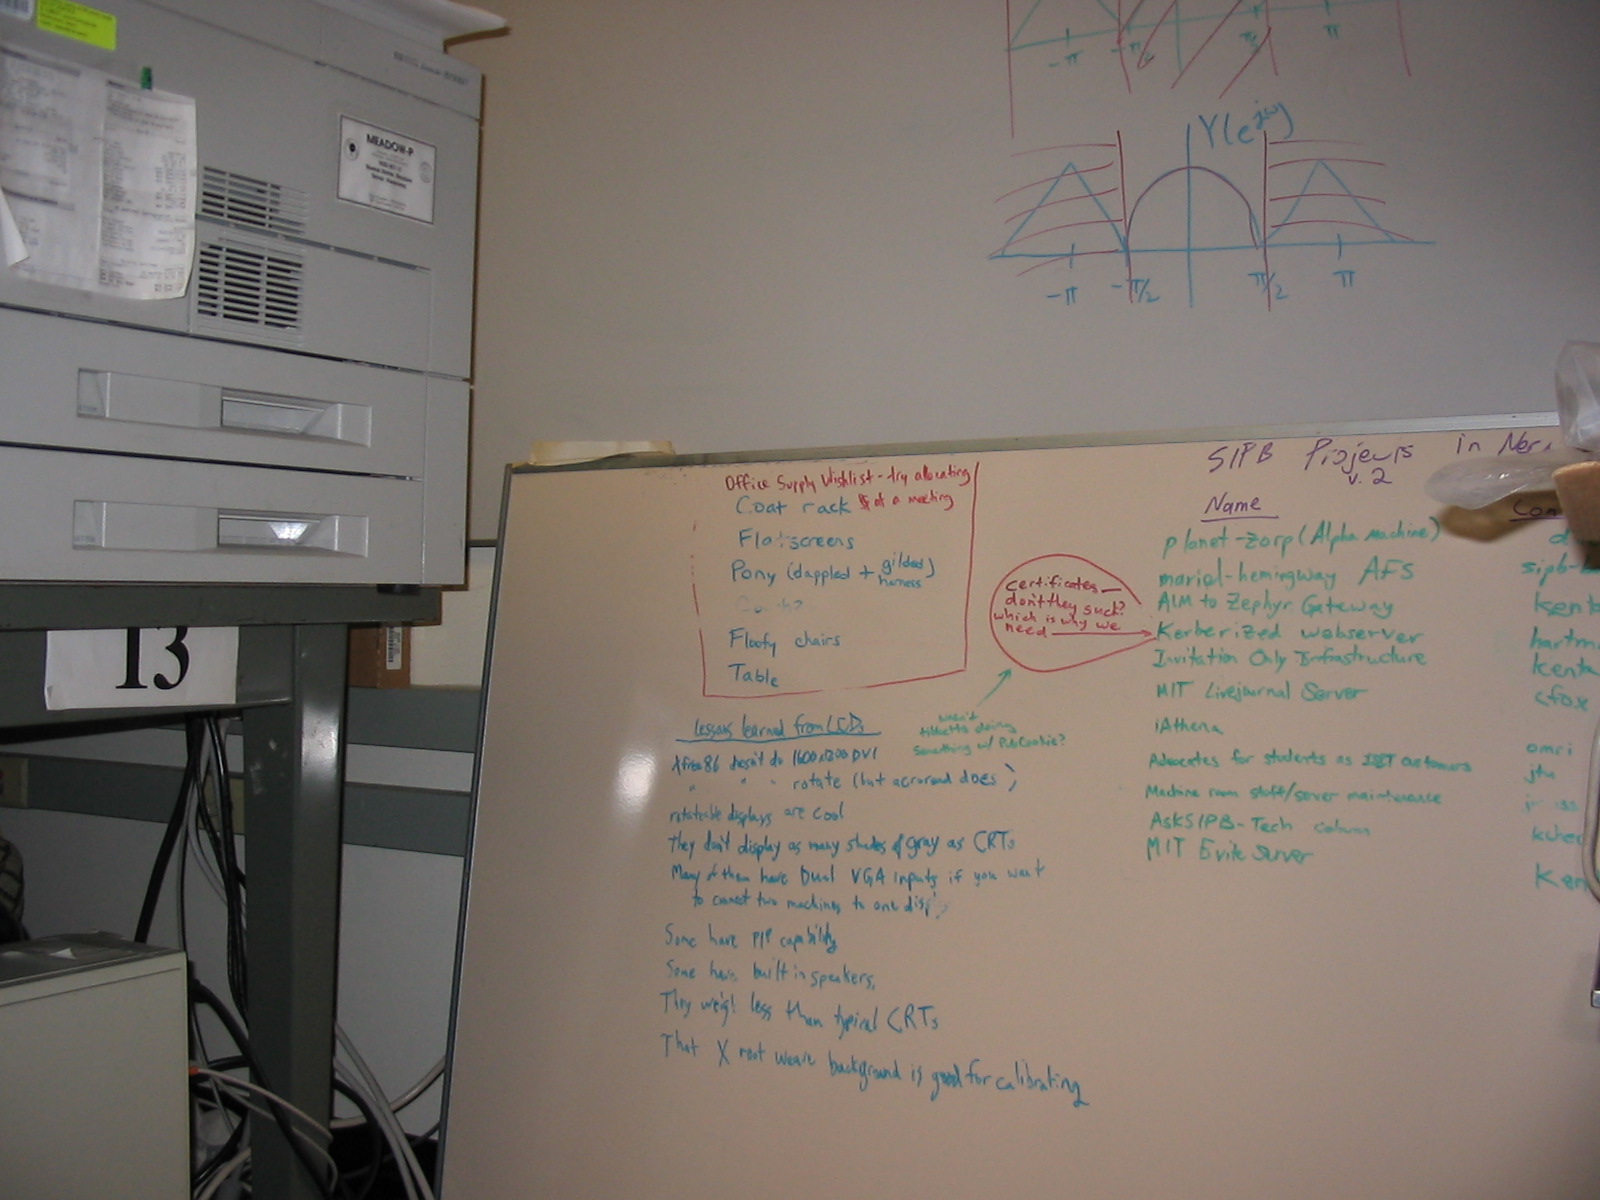 MEADOW-P
13
-π
π
Y(e^jω)
-π
-π/2
π/2
π
Office Supply Wishlist - try allocating
$ at a meeting
Coat rack
Flatscreens
Pony (dappled + gilded harness)
Floofy chairs
Table
certificates—
don't they suck?
which is why we
need
wasn't
tibbetts doing
something w/ PubCookie?
Lessons learned from LCDs
Xfree86 doesn't do 1600x1200 DVI
" " " rotate (but accroread does)
rotatable displays are cool
They don't display as many shades of gray as CRTs
Many of them have Dual VGA inputs if you want
to connect two machines to one disp
Some have PIP capability
Some have built in speakers,
They weigh less than typical CRTs
That X root weave background is good for calibrating
SIPB Projects in
v. 2
Name
planet-zorp (Alpha machine)
mariel-hemingway AFS
AIM to Zephyr Gateway
Kerberized webserver
Invitation Only Infrastructure
MIT Livejournal Server
iAthena
Advocates for students as IS&T customers
Machine room stuff/server maintenance
AskSIPB-Tech column
MIT Evite Server
Con
d
sipb-
kent
hartm
kenta
cfox
omri
jtu
kcher
Ken